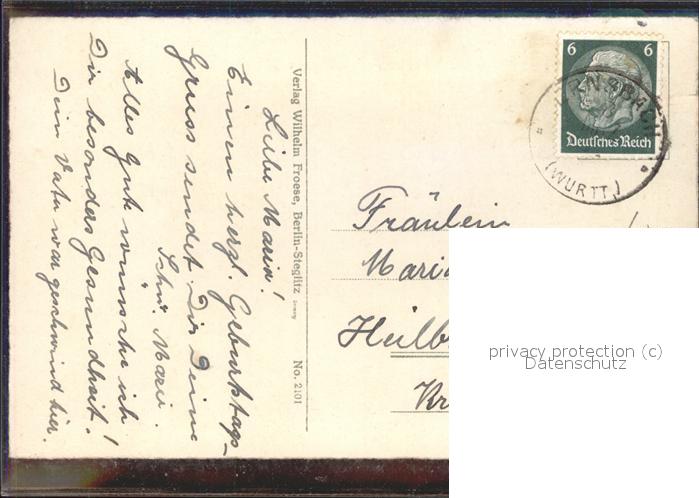 Liebe Maria!
Einen herzl. Geburtstags-
gruss sendet Dir Deine
Schw. Marie.
Alles Gute wünsche ich
Dir besonders Gesundheit!
Dein Vater war geschwind hier.
Verlag Wilhelm Froese, Berlin-Steglitz
No. 2101
6 6
Deutsches Reich
(WÜRTT.)
Fräulein
Heilb
privacy protection (c)
Datenschutz